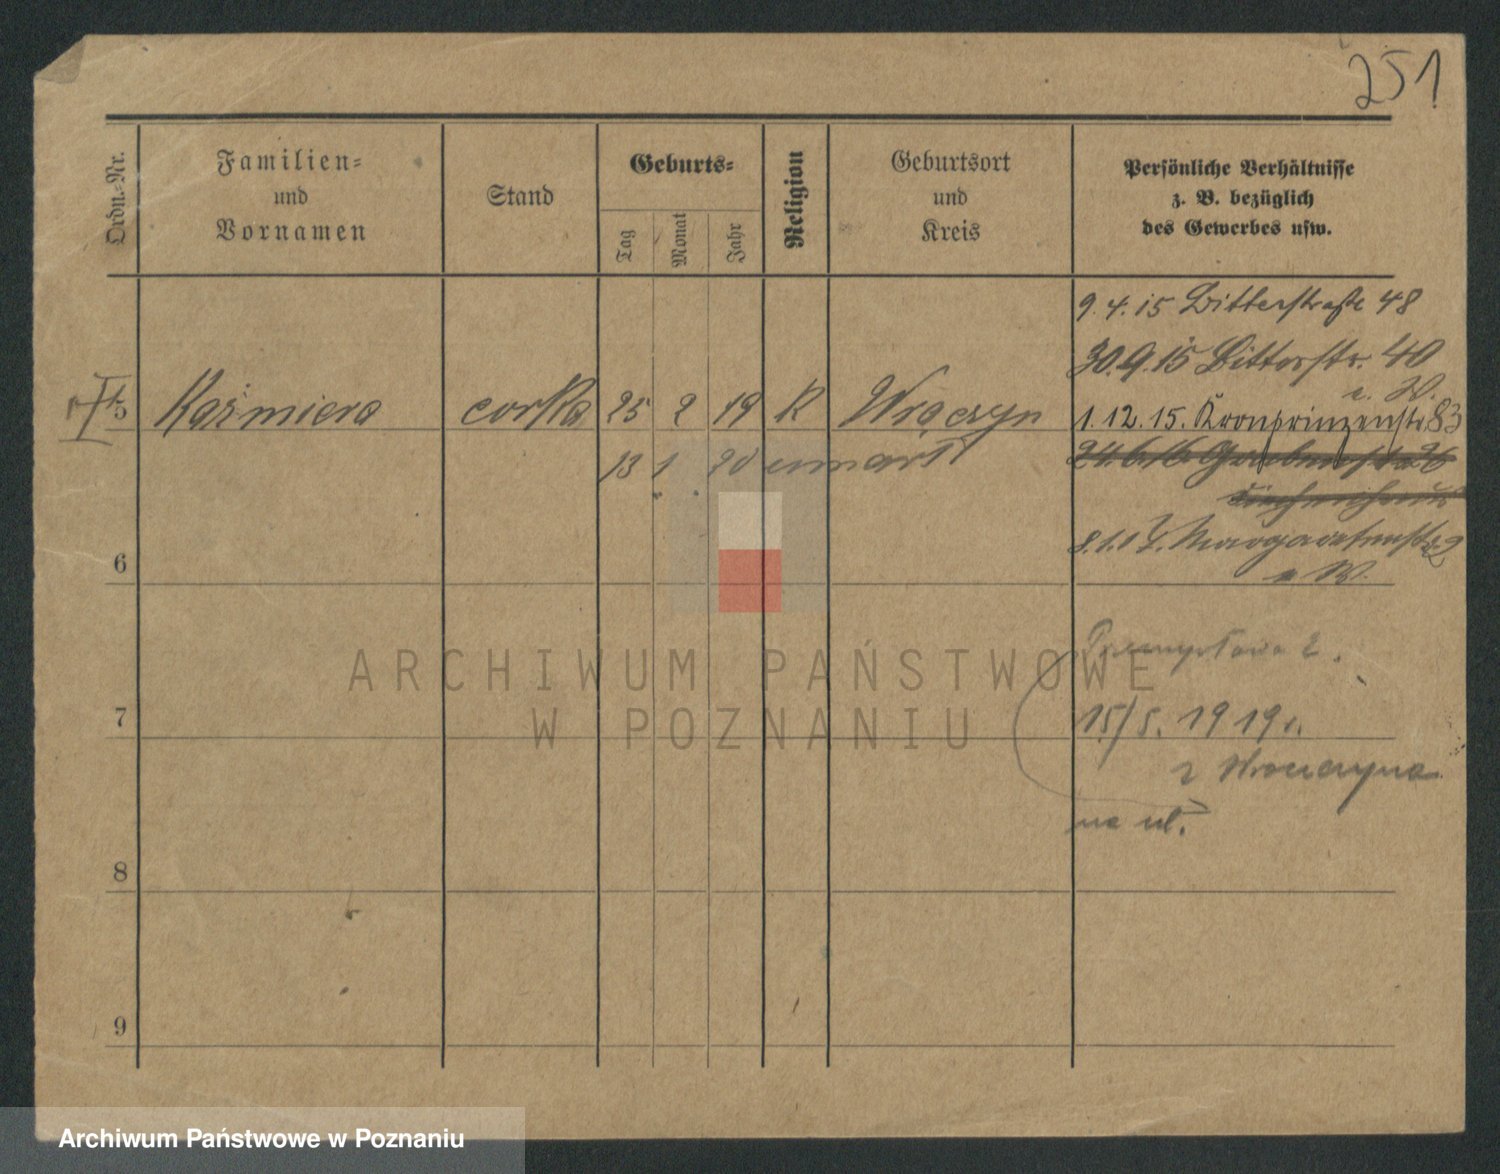 251
Ordn.-Nr.
Familien-
und
Vornamen
Stand
Geburts-
Tag
Monat
Jahr
Religion
Geburtsort
und
Kreis
Persönliche Verhältnisse
z. B. bezüglich
des Gewerbes usw.
9. 4. 15 Bitterstraße 48
30. 9. 15 Bitterstr. 40
5 Kaźmiera corka 25 2 19 K Wrączyn
1. 12. 15. Kronprinzenstr. 83
13 1 20 umarł
24. 6. 16. Grabenstr. 26
8. 1. 17. Margaretenstr. 9
6
Przemysłowa 2.
7
15/5. 1919 r.
z Wrączyna
na ul.
8
9
ARCHIWUM PAŃSTWOWE
W POZNANIU
Archiwum Państwowe w Poznaniu